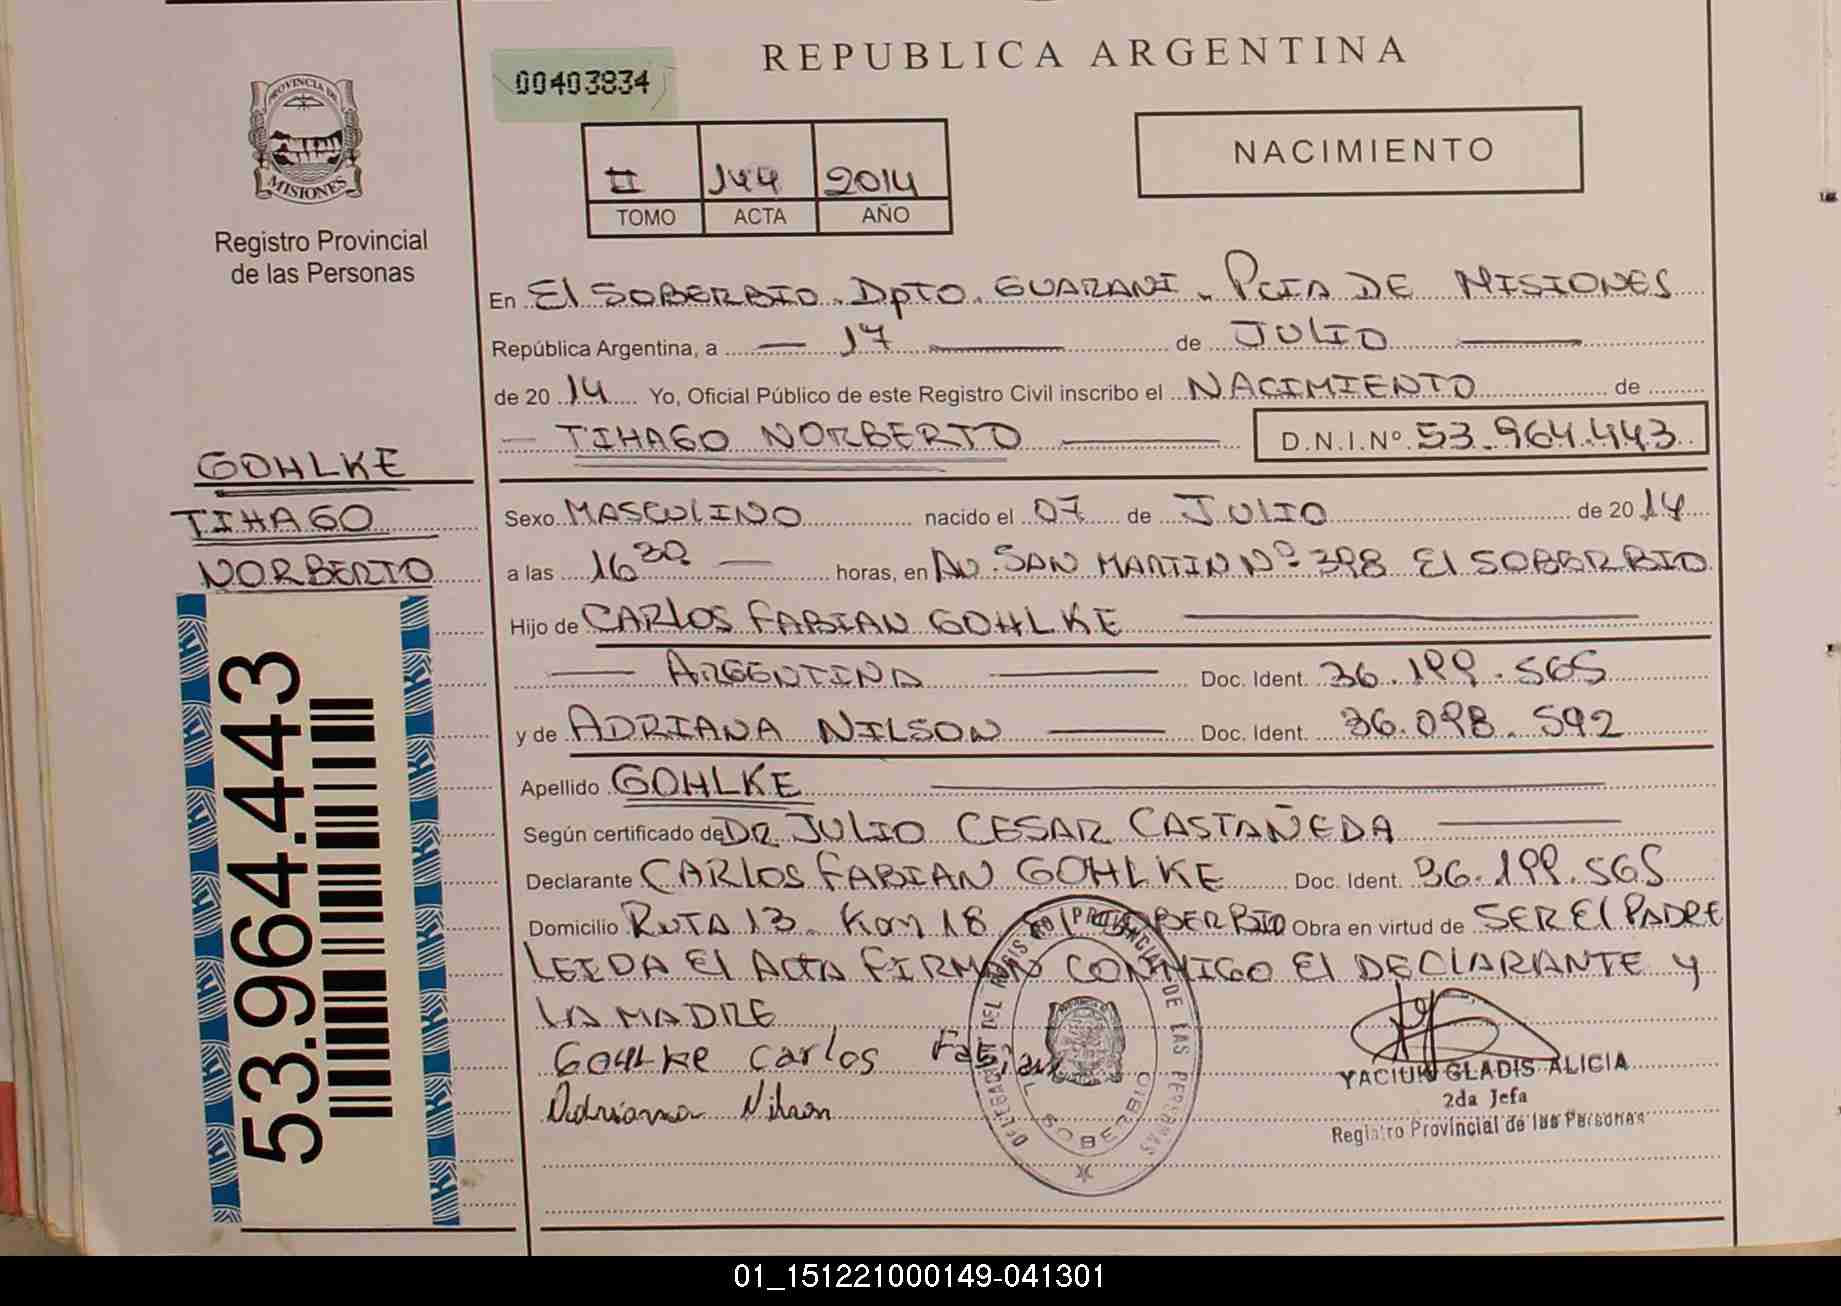 REPUBLICA ARGENTINA
00403834
PROVINCIA DE
MISIONES
Registro Provincial
de las Personas
II 144 2014
TOMO ACTA AÑO
NACIMIENTO
En El SOBERBIO. DPTO. GUARANI. PCIA DE MISIONES
República Argentina, a 17 de JULIO
de 2014 Yo, Oficial Público de este Registro Civil inscribo el NACIMIENTO de
TIHAGO NORBERTO D.N.I.Nº 53.964.443
GOHLKE
TIHAGO
NORBERTO
53.964.443
Sexo MASCULINO nacido el 07 de JULIO de 2014
a las 16 30 horas, en AV. SAN MARTIN Nº 398 El SOBERBIO
Hijo de CARLOS FABIAN GOHLKE
ARGENTINA Doc. Ident. 36.199.565
y de ADRIANA NILSON Doc. Ident. 36.098.592
Apellido GOHLKE
Según certificado de DR JULIO CESAR CASTAÑEDA
Declarante CARLOS FABIAN GOHLKE Doc. Ident. 36.199.565
Domicilio RUTA 13 Km 18 El SOBERBIO Obra en virtud de SER El PADRE
LEIDA El ACTA FIRMAN CONMIGO El DECLARANTE y
LA MADRE
GOHLKE Carlos Fabian
Adriana Nilson
YACIUK GLADIS ALICIA
2da Jefa
Registro Provincial de las Personas
01_151221000149-041301